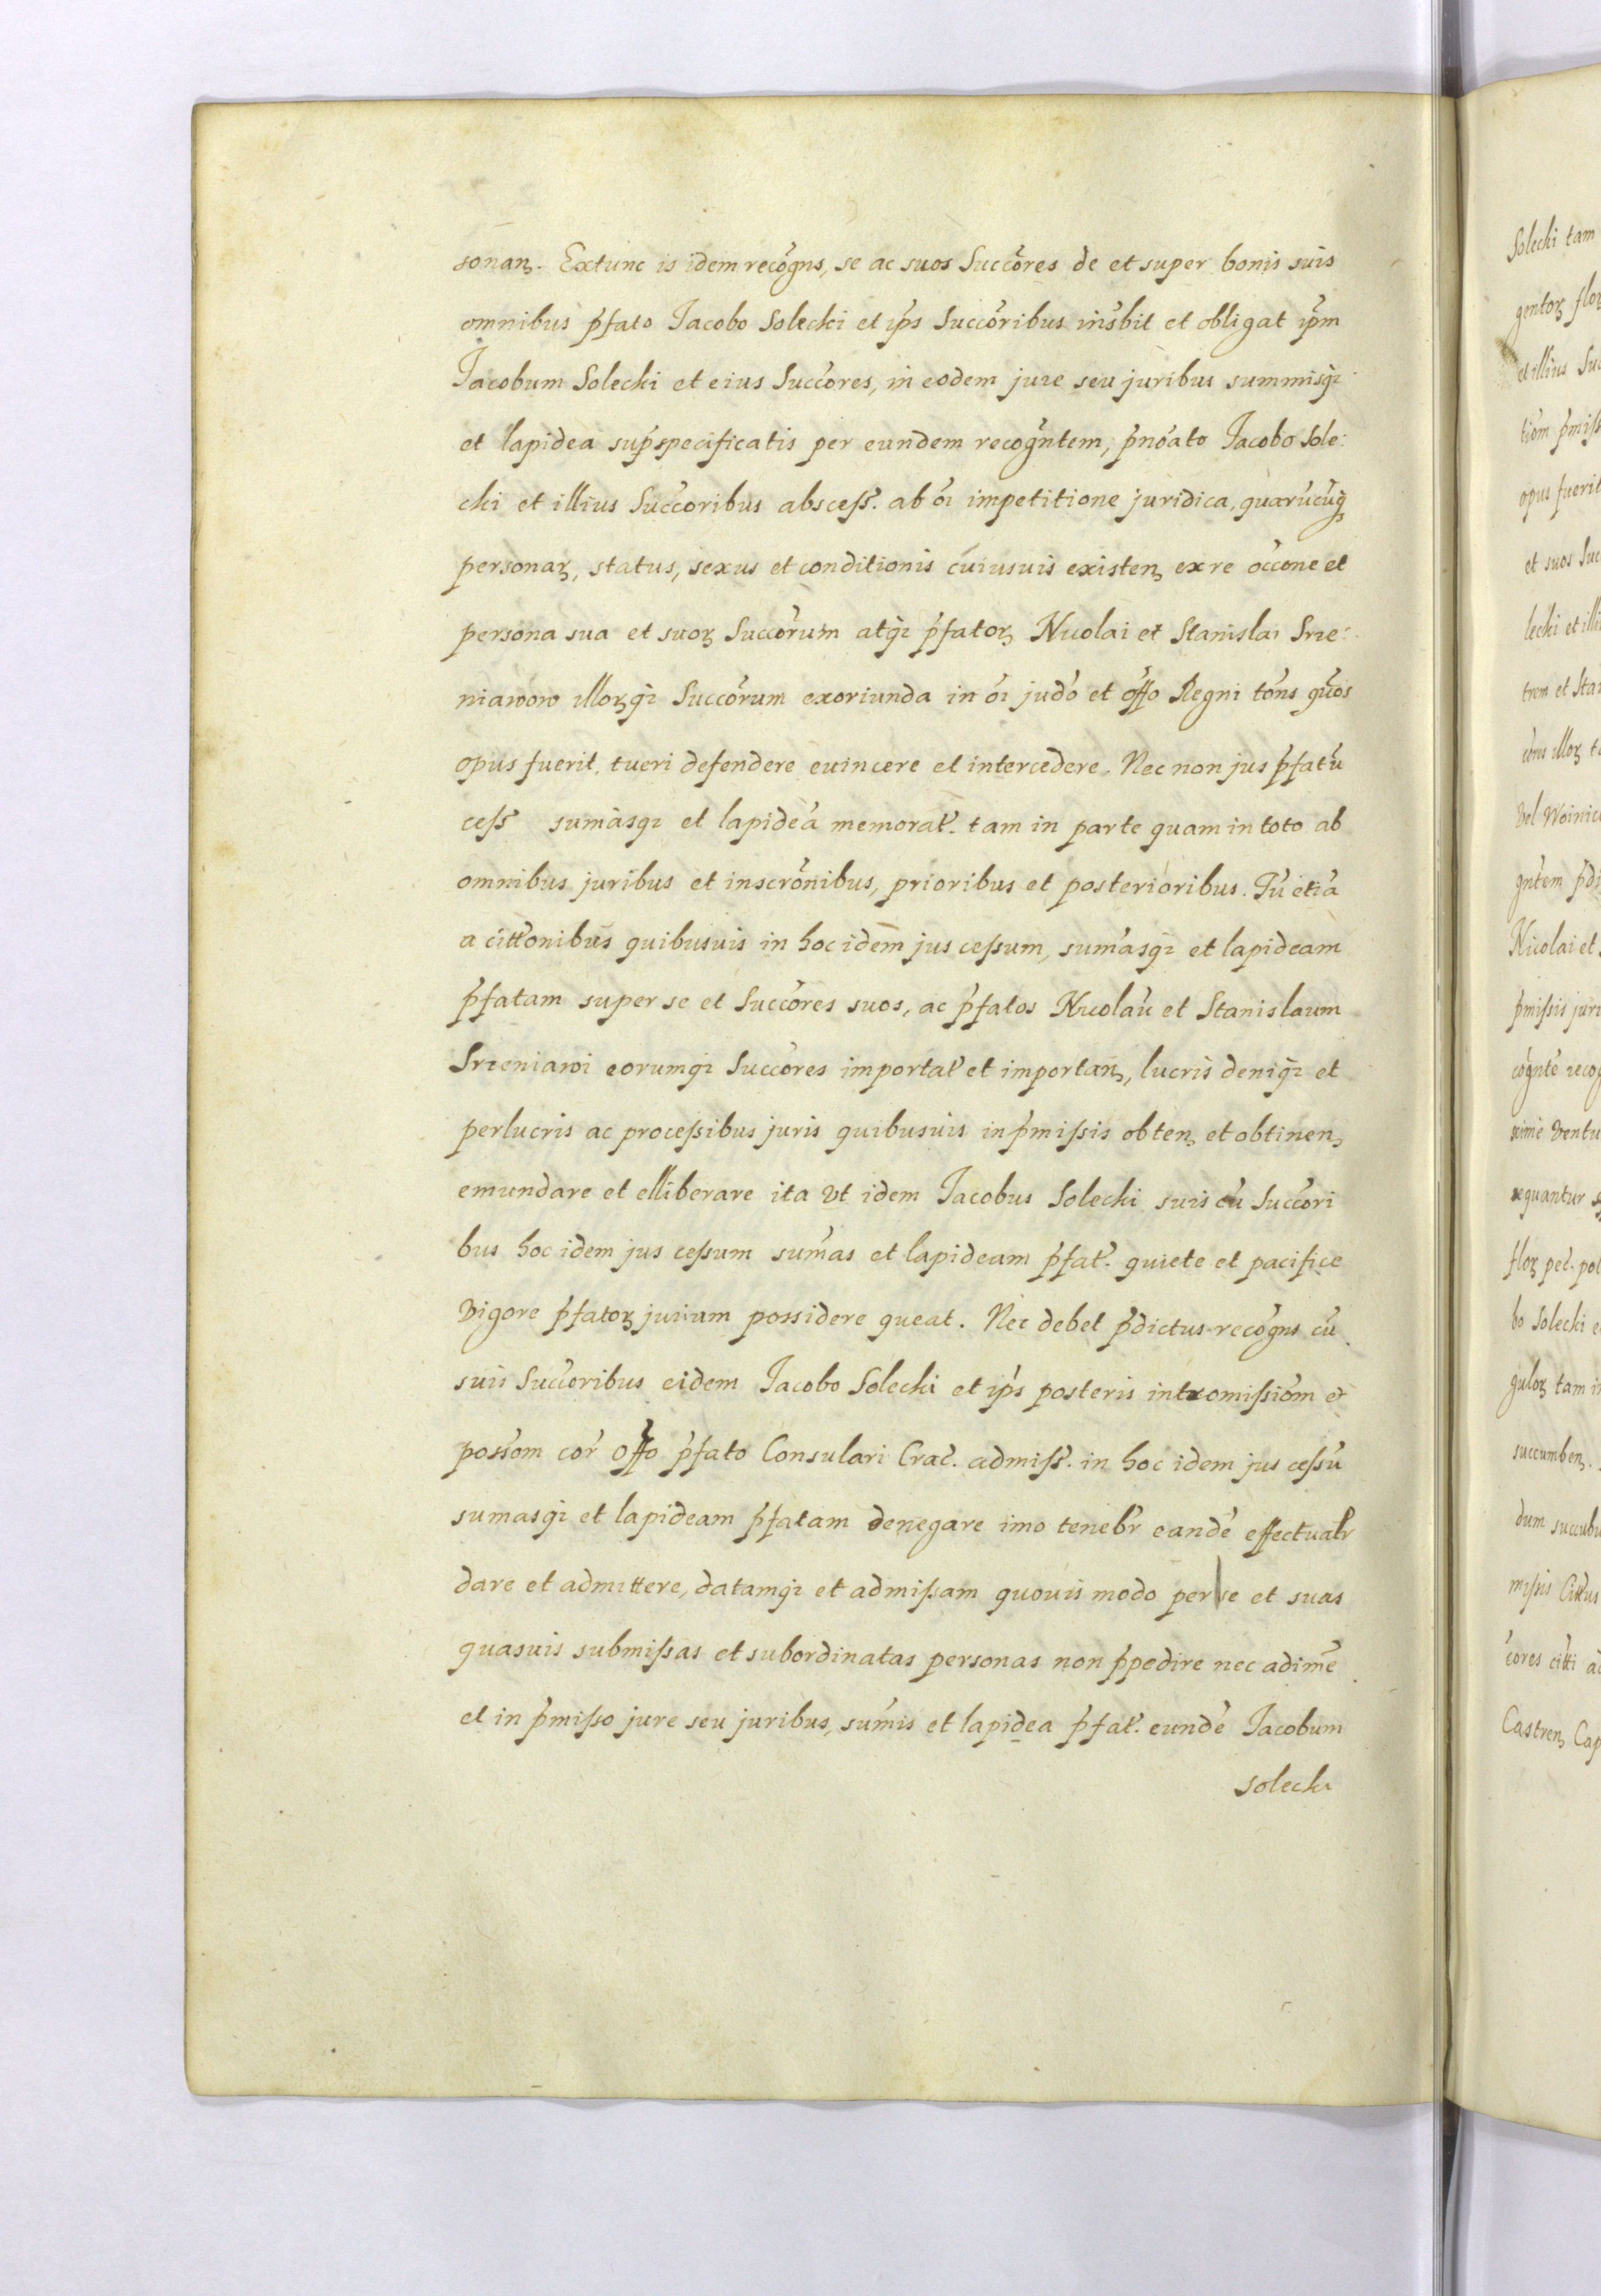 sonanꝫ. Extunc is idem recõgns, se ac suos Succõres de et super bonis suis
omnibus p̃fato Jacobo Solecki et ip̃s Succõribus insc̃bit et obligat ip̃m
Jacobum Solecki et eius Succ̃ores, in eodem jure seu juribus summisqꝫ
et lapidea sup̃specificatis per eundem recog̃ntem, p̃nõato Jacobo Sole:
cki et illius Succ̃oribus abscess̃. ab õi impetitione juridica, quarũcũqꝫ
personaꝝ, status, sexus et conditionis cuiusuis existenꝫ ex re occ̃one et
persona sua et suoꝝ Succõrum atqꝫ p̃fatoꝝ Nicolai et Stanislai Srze:
niawow illoꝝqꝫ Succõrum exoriunda in õi jud̃o et offõ Regni tõns quõs
opus fuerit, tueri defendere euincere et intercedere. Nec non jus p̃fatũ
cess̃ sum̃asqꝫ et lapideã memorat̃. tam in parte quam in toto ab
omnibus juribus et inscrõnibus, prioribus et posterioribus. Tũ etiã
a citt̃onibus quibusuis in hoc idem jus cessum, sum̃asqꝫ et lapideam
p̃fatam super se et Succõres suos, ac p̃fatos Nicolaũ et Stanislaum
Srzeniawi eorumqꝫ Succõres importat̃ et importanꝫ, lucris deniqꝫ et
perlucris ac processibus juris quibusuis in p̃missis obtenꝫ et obtinenꝫ
emundare et elliberare ita vt idem Jacobus Solecki suis cũ Succõri
bus hoc idem jus cessum sum̃as et lapideam p̃fat̃. quiete et pacifice
vigore p̃fatoꝝ jurium possidere queat. Nec debet p̃dictus recõgns cũ
suis Succ̃oribus eidem Jacobo Solecki et ip̃s posteris intromissiõm et
poss̃om cor̃ offõ p̃fato Consulari Crac̃. admiss̃. in hoc idem jus cessũ
sumasqꝫ et lapideam p̃fatam denegare imo teneb̃r eandẽ effectual̃r
dare et admittere, datamqꝫ et admissam quouis modo per se et suas
quasuis submissas et subordinatas personas non p̃pedire nec adimẽ
et in p̃misso jure seu juribus, sum̃is et lapidea p̃fat̃. eundẽ Jacobum
Solecki